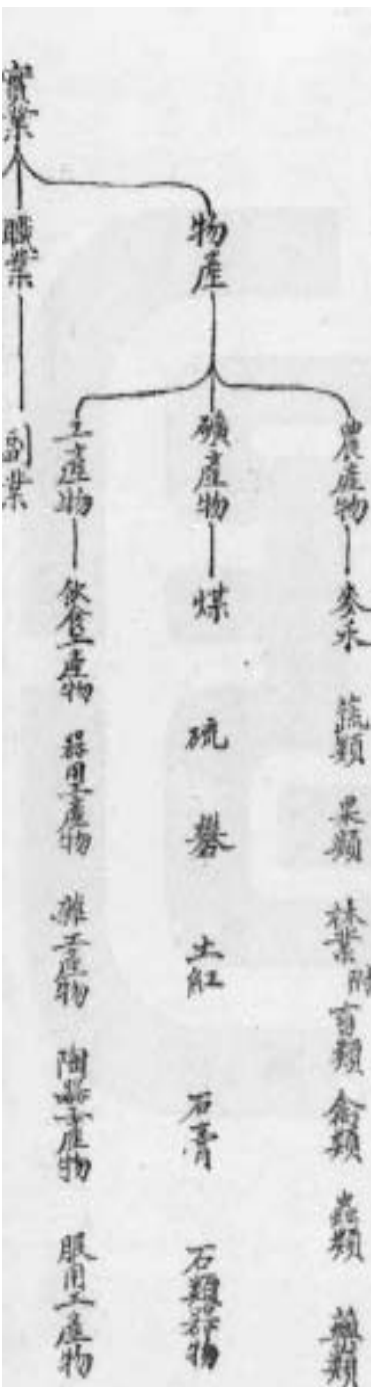 實業
物產
農產物
麥禾 蔬類 果類 林業附 畜類 禽類 蟲類
礦產物
煤 硫 礬 土紅 石膏 石類器物
工產物
飲食工產物 器用工產物 雜工產物 陶器工產物 服用工產物
職業
副業